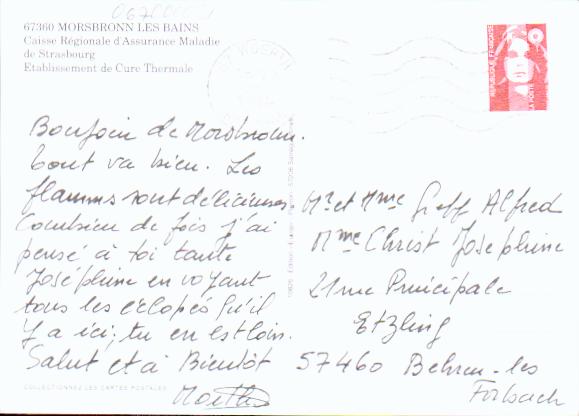 67360 MORSBRONN LES BAINS
Caisse Régionale d'Assurance Maladie
de Strasbourg
Etablissement de Cure Thermale
REPUBLIQUE FRANÇAISE
LA POSTE
Bonjour de Morsbronn.
tout va bien. Les
flamms sont délicieuses.
Combien de fois j'ai
pensé à toi tante
Joséphine en voyant
tous les éclopés qu'il
y a ici; tu en est loin.
Salut et à Bientôt
Marthe
Mr et Mme Greff Alfred
Mme Christ Joséphine
21 rue Principale
Etzling
57460 Behren-les
Forbach
COLLECTIONNEZ LES CARTES POSTALES